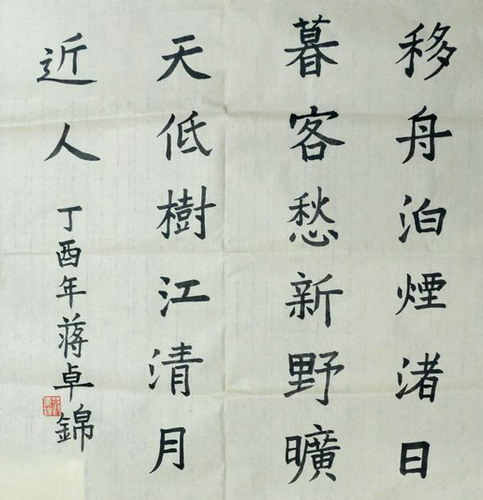 移舟泊煙渚日
暮客愁新野曠
天低樹江清月
近人
丁酉年蔣卓錦